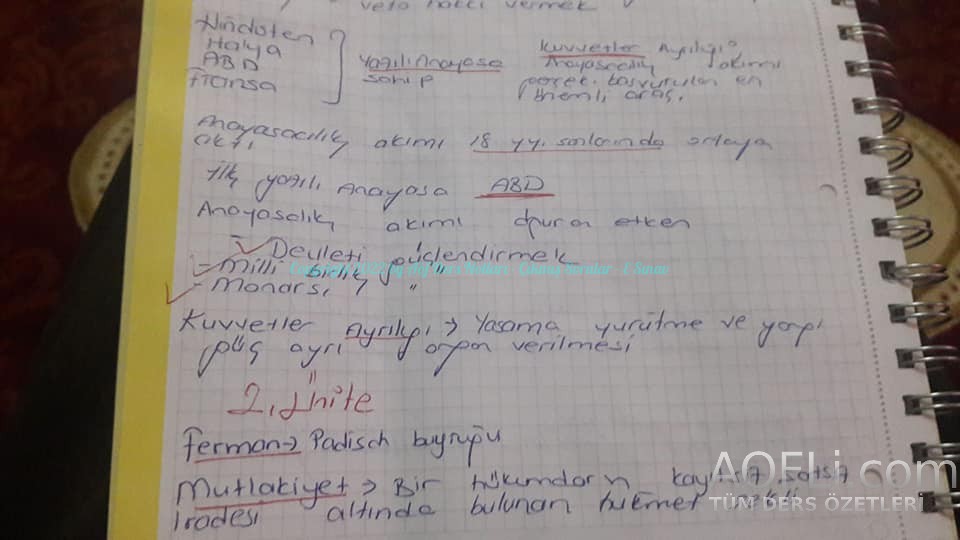 veto hakkı vermek
Hindistan
İtalya
ABD
Fransa
Yazılı Anayasa
sahip
Kuvvetler Ayrılığı,
Anayasacılık akımı
gerek. başvurulan en
önemli araç.
Anayasacılık akımı 18 yy. sonlarında ortaya
çıktı
İlk yazılı Anayasa ABD
Anayasalık akımı etken
- Devleti güçlendirmek
- Milli birlik "
- Monarşi "
Kuvvetler Ayrılığı → Yasama yürütme ve yargı
güç ayrı organ verilmesi
2. Ünite
Ferman → Padişah buyruğu
Mutlakiyet → Bir hükümdarın kayıtsız şatsız
İradesi altında bulunan hükümet
AOFLi.com
TÜM DERS ÖZETLERİ